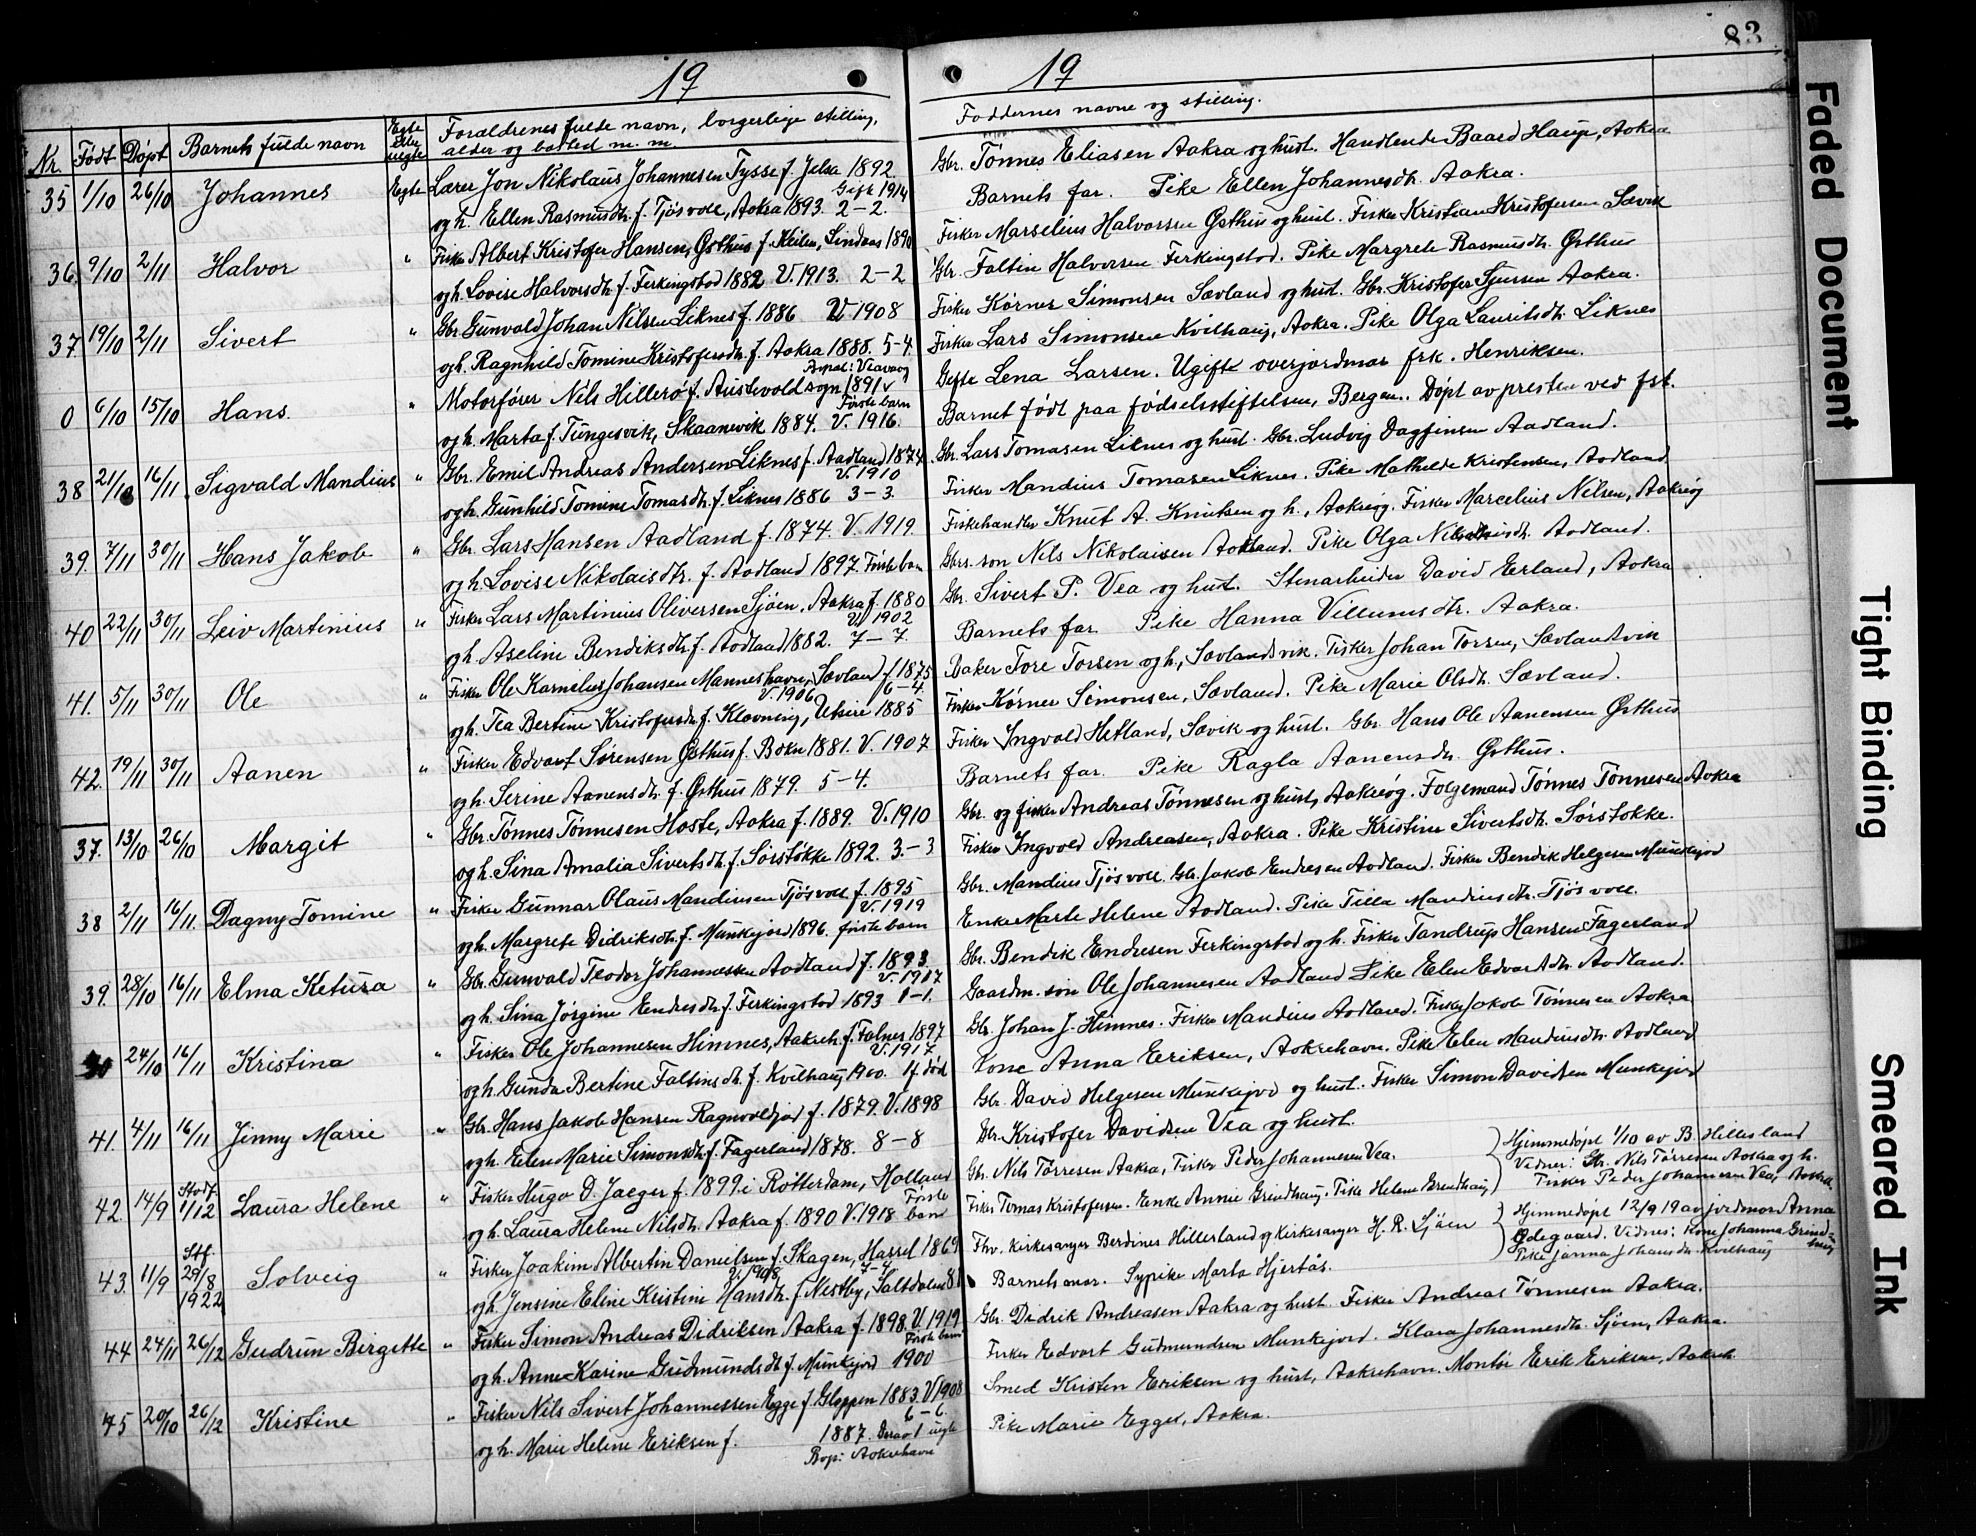 83
19
19
Nr. Født Døpt Barnets fulde navn Egte eller uegte Forældrenes fulde navn, borgerlige stilling, alder og bosted m. m.
Faddernes navne og stilling.
35 1/10 26/10 Johannes Egte Lærer Jon Nikolaus Johannesen Tysse f. Jelsa 1892. Gift 1914
og h. Ellen Rasmusdtr. f. Tjøsvoll, Aakra 1893. 2–2.
Gbr. Tønnes Eliasen Aakra og hust. Handlende Baard Hauge, Aakra
Barnets far. Pike Ellen Johannesdtr. Aakra.
36. 9/10 2/11 Halvor " Fisker Albert Kristofer Hansen, Østhus f. Keilen, Lindaas 1890
og h. Lovise Halvorsdtr. f. Ferkingstad 1882 V. 1913. 2–2
Fisker Marselius Halvorsen Østhus og hust. Fisker Kristian Kristofersen Sævik
Gbr. Faltin Halvorsen Ferkingstad. Pike Margrete Rasmusdtr. Østhus
37 19/10 2/11 Sivert " Gbr. Gunvald Johan Nilsen Liknes f. 1886 V 1908
og h. Ragnhild Tomine Kristofersdtr. f. Aakra 1888. 5–4.
Fisker Kørner Simonsen Sævland og hust. Gbr. Kristofer Sjursen Aakra.
Fisker Lars Simonsen Kvilhaug, Aakra. Pike Olga Lauritsdtr. Liknes
0 6/10 15/10 Hans. " Motorfører Nils Hillerø f. Austevold sogn 1891 Bopæl: Veavaag
og h. Marta f. Tungesvik, Skaanevik 1884. V. 1916. Første barn
Gifte Lena Larsen. Ugifte overjordmor frk. Henriksen.
Barnet født paa fødselsstiftelsen, Bergen. Døpt av presten ved fst.
38 21/10 16/11 Sigvald Mandius " Gbr. Emil Andreas Andersen Liknes f. Aadland 1874 V. 1910
og h. Gunhild Tomine Tomasdtr. f. Liknes 1886 3–3.
Gbr. Lars Tomasen Liknes og hust. Gbr. Ludvig Dagfinsen Aadland.
Fisker Mandius Tomasen Liknes. Pike Mathilde Kristensen, Aadland
39. 7/11 30/11 Hans Jakob " Gbr. Lars Hansen Aadland f. 1874. V. 1919.
og h. Lovise Nikolaisdtr. f. Aadland 1897. Første barn
Fiskehandler Knut A. Knutsen og h., Aakreøg. Fisker Marcelius Nilsen, Aakreøg
Gbrs. søn Nils Nikolaisen Aadland. Pike Olga Nikolaisdtr. Aadland.
40 22/11 30/11 Leiv Martinius " Fisker Lars Martinius Oliversen Sjøen, Aakra f. 1880 V. 1902
og h. Aseline Bendiksdtr. f. Aadland 1882. 7–7.
Gbr. Sivert P. Vea og hust. Stenarbeider David Erland, Aakra
Barnets far. Pike Hanna Villumsdtr. Aakra.
41. 5/11 30/11 Ole " Fisker Ole Karnelius Johansen Manneshavn, Sævland f. 1875 V. 1906 6–4.
og h. Tea Bertine Kristofersdtr. f. Klovning, Utsire 1885
Baker Tore Torsen og h., Sævlandsvik. Fisker Johan Torsen, Sævlandsvik
Fisker Kørner Simonsen, Sævland. Pike Marie Olsdtr. Sævland.
42. 19/11 30/11 Aanen " Fisker Edvart Sørensen Østhus f. Bokn 1881. V. 1907
og h. Serine Aanensdtr. f. Østhus 1879. 5–4.
Fisker Ingvald Hetland, Sævik og hust. Gbr. Hans Ole Aanensen Østhus
Barnets far. Pike Ragla Aanensdtr. Østhus.
37. 13/10 26/10 Margit " Gbr. Tønnes Tønnesen Hoste, Aakra f. 1889. V. 1910
og h. Sina Amalia Sivertsdtr. f. Sørstokke 1892. 3.–3
Gbr. og fisker Andreas Tønnesen og hust., Aakreøg. Følgemand Tønnes Tønnesen Aakra
Fisker Ingvald Andreasen, Aakra. Pike Kristine Sivertsdtr. Sørstokke.
38 2/11 16/11. Dagny Tomine " Fisker Gunnar Olaus Mandiussen Tjøsvoll f. 1895 V. 1919
og h. Margrete Didriksdtr. f. Munkejord 1896. første barn
Gbr. Mandius Tjøsvoll. Gbr. Jakob Endresen Aadland. Fisker Bendik Helgesen Munkejord
Enke Marte Helene Aadland. Pike Tilla Mandiusdtr. Tjøsvoll.
39. 28/10 16/11 Elma Ketura " Gbr. Gunvald Teodor Johannessen Aadland f. 1893. V. 1917
og h. Sina Jørgine Endresdtr. f. Ferkingstad 1893 1–1.
Gbr. Bendik Endresen Ferkingstad og h. Fisker Tandrup Hansen Fagerland
Gaardm. søn Ole Johannesen Aadland Pike Elen Edvartsdtr. Aadland.
24/10 16/11 Kristina " Fisker Ole Johannesen Himnes, Aakreh. f. Falnes 1897 V. 1917
og h. Gunda Bertine Faltinsdtr. f. Kvilhaug 1900. 1 f. død
Gbr. Johan J. Himnes. Fisker Mandius Aadland. Fisker Jakob Tønnesen Aakra
Kone Anna Eriksen, Aakrehavn. Pike Elen Mandiusdtr. Aadland
41. 4/11 16/11 Jinny Marie " Gbr. Hans Jakob Hansen Ragnvaldjord f. 1879. V. 1898
og h. Elen Marie Simonsdtr. f. Fagerland 1878. 8–8
Gbr. David Helgesen Munkejord og hust. Fisker Simon Davidsen Munkejord
Gbr. Kristofer Davidsen Vea og hust.
42. 14/9 Stadf. 1/12 Laura Helene " Fisker Hugo D. Jaeger f. 1899 i Rotterdam, Holland
og h. Laura Helene Nilsdtr. Aakra f. 1890 V. 1918 Første barn
Gbr. Nils Tørresen Aakra, Fisker Peder Johannesen Vea.
Fisker Tomas Kristofersen. Enke Annie Grindhaug. Pike Helene Grindhaug
Hjemmedøpt 1/10 av B. Hillesland
Vidner: Gbr. Nils Tørresen Aakra og h.
Fisker Peder Johannesen Vea, Aakra.
43. 11/9 Stf. 29/8 1922 Solveig " Fisker Joakim Albertin Danielsen f. Skagen, Hassel 1869 V. 1908 7–4
og h. Jensine Eline Kristine Hansdtr. f. Nestby, Saltdalen 81
Fhv. kirkesanger Berdines Hillesland og kirkesanger H. R. Sjøen
Barnets mor. Sypike Marta Hjertås.
Hjemmedøpt 12/9 19 av jordmor Anna
Ødegaard. Vidner: Kone Johanna Grindhaug
Pike Janna Johansdtr. Kvilhaug
44 24/11 26/12 Gudrun Birgitte " Fisker Simon Andreas Didriksen Aakra f. 1898. V. 1919 Første barn
og h. Anne Karine Gudmundsdtr. f. Munkejord 1900
Gbr. Didrik Andreasen Aakra og hust. Fisker Andreas Tønnesen Aakra.
Fisker Edvart Gudmundsen Munkejord. Klara Johannesdtr. Sjøen, Aakra.
45 20/10 26/12 Kristine " Fisker Nils Sivert Johannessen Egge f. Gloppen 1883. V 1908 6–6.
og h. Marie Helene Eriksen f. 1887. Derav 1 uegte
Bop: Aakrehavn
Smed Kristen Eriksen og hust., Aakrehavn. Montør Erik Eriksen, Aakreh.
Pike Marie Egge, Aakra.
Faded Document
Tight Binding
Smeared Ink